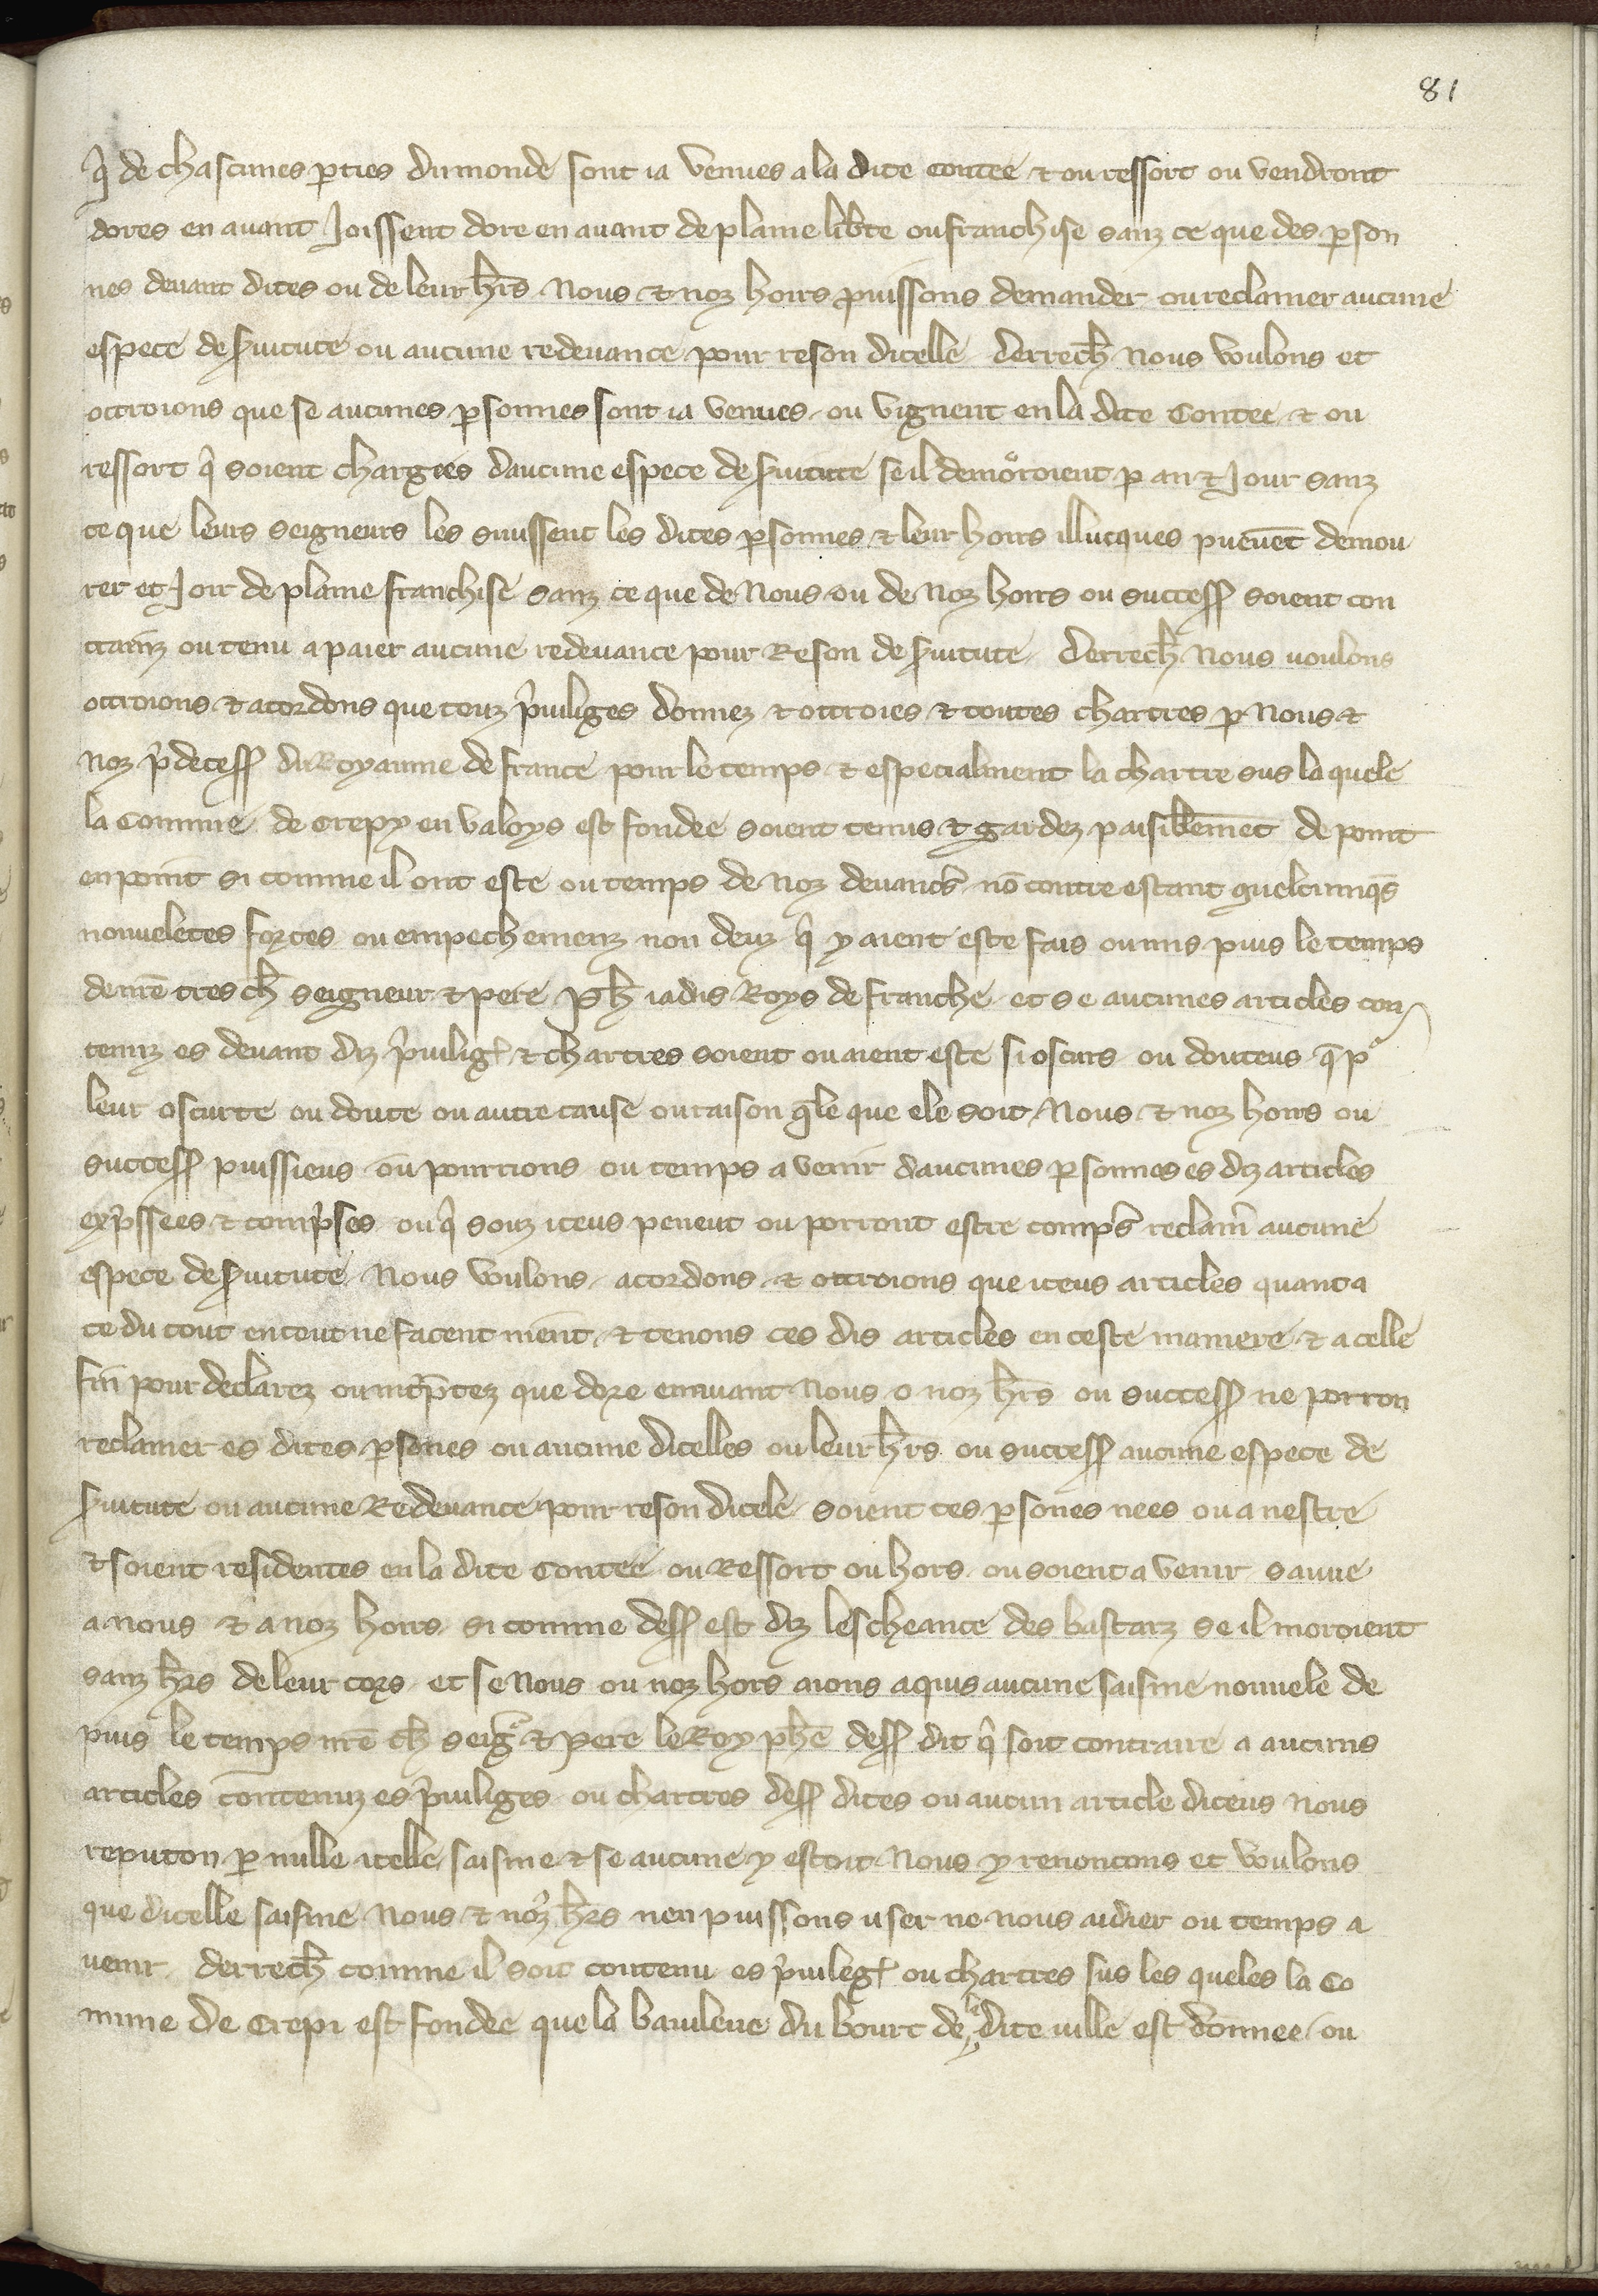 81
qͥ de chascunes ꝑties du monde sont ia venues a la dite contee ⁊ ou ressort ou vendront
dores en auant Joissent dore en auant de plaine lib̾te ou franchise sanz ce que des ꝑson
nes deuant dites ou de leur h̅rs nous ⁊ noz hoirs puissons demander ou reclamer aucune
espece de s̾uitute ou aucune redeuance pour reson dicelle derrech̅ nous voulons et
ottroions que se aucunes ꝑsonnes sont ia venues ou vignent en la dite Contee ⁊ ou
ressort qͥ soient chargies daucune espece de s̾uitute se il demoͦroient ꝑ an ⁊ Jour sanz
ce que leurs seigneurs les suussent les dites ꝑsonnes ⁊ leur hoirs illucques pueue̅t demou
rer et Joir de plaine franchise sanz ce que de nous ou de noz hoirs ou success̅ soient con
trainz ou tenu a paier aucune redeuance pour Reson de s̾uitute derrech̅ nous uoulons
ottroions ⁊ acordons que touz pͥuiliges donnez ⁊ ottroies ⁊ toutes chartres ꝑ nous ⁊
noz p̾decess̅ du Royaume de france pour le temps ⁊ especialment la chartre sus la quele
la Commune de crepy en valoys est fondee soient tenus ⁊ gardez paisible̅me̅t de point
en point si comme il ont este ou temps de noz deuanc̾s no̅ contre estant quelcunqs̅
nouueletes fortes ou empechemenz non deuz qͥ y aient este fais ou mis puis le temps
de nr̅e tres ch̅ seigneur ⁊ pere ph̅ iadis Roys de franche et se aucunes articles con
tenuz es deuant diz pͥuilig̾ ⁊ chartres soient ou aient este si oscurs ou douteus q̅ pͬ
leur oscurte ou doute ou autre cause ou raison q̅le que ele soit nous ⁊ noz hoirs ou
success̅ puissiens ou pourrions ou temps a venir daucunes ꝑsonnes es diz articles
exp̾ssees ⁊ comp̾ses ou qͥ souz iceus peuent ou porront estre comp̾s reclam̾ aucune
espece de s̾uitute nous voulons acordons ⁊ ottroions que iceus articles quant a
ce du tout en tout ne facent nient ⁊ tenons ces dis articles en ceste maniere ⁊ a celle
fin pour declarez ou int̾p̅tez que dore enauant nous o noz h̅rs ou success̅ ne porron
reclamer es dites ꝑsones ou aucune dicelles ou leur h̅rs ou success̅ aucune espece de
s̾uitute ou aucune Redeuance pour reson dicele soient ces ꝑsones nees ou a nestre
⁊ soient residentes en la dite Contee ou Ressort ou hors ou soient a venir sauue
a nous ⁊ a noz hoirs si comme dess̅ est diz lescheance des bastarz se il moroient
sanz h̅rs de leur cors et se nous ou noz hors aions aquis aucune saisine nouuele de
puis le temps nr̅e ch̅ seigͬ ⁊ pere le Roy ph̅e dess̅ dit qͥ soit contraire a aucuns
articles contenuz es pͥuiliges ou chartres dess̅ dites ou aucun article diceus nous
reputon ꝑ nulle icelle saisine ⁊ se aucune y estoit nous y renoncons et voulons
que dicelle saisine nous ⁊ noz h̅rs nen puissons user ne nous aidier ou temps a
uenir derrech̅ comme il soit contenu es pͥuileg̾ ou chartres sus les queles la Co
mune de Crepi est fondee que la banliene du bourc de la dite uille est donnee ou